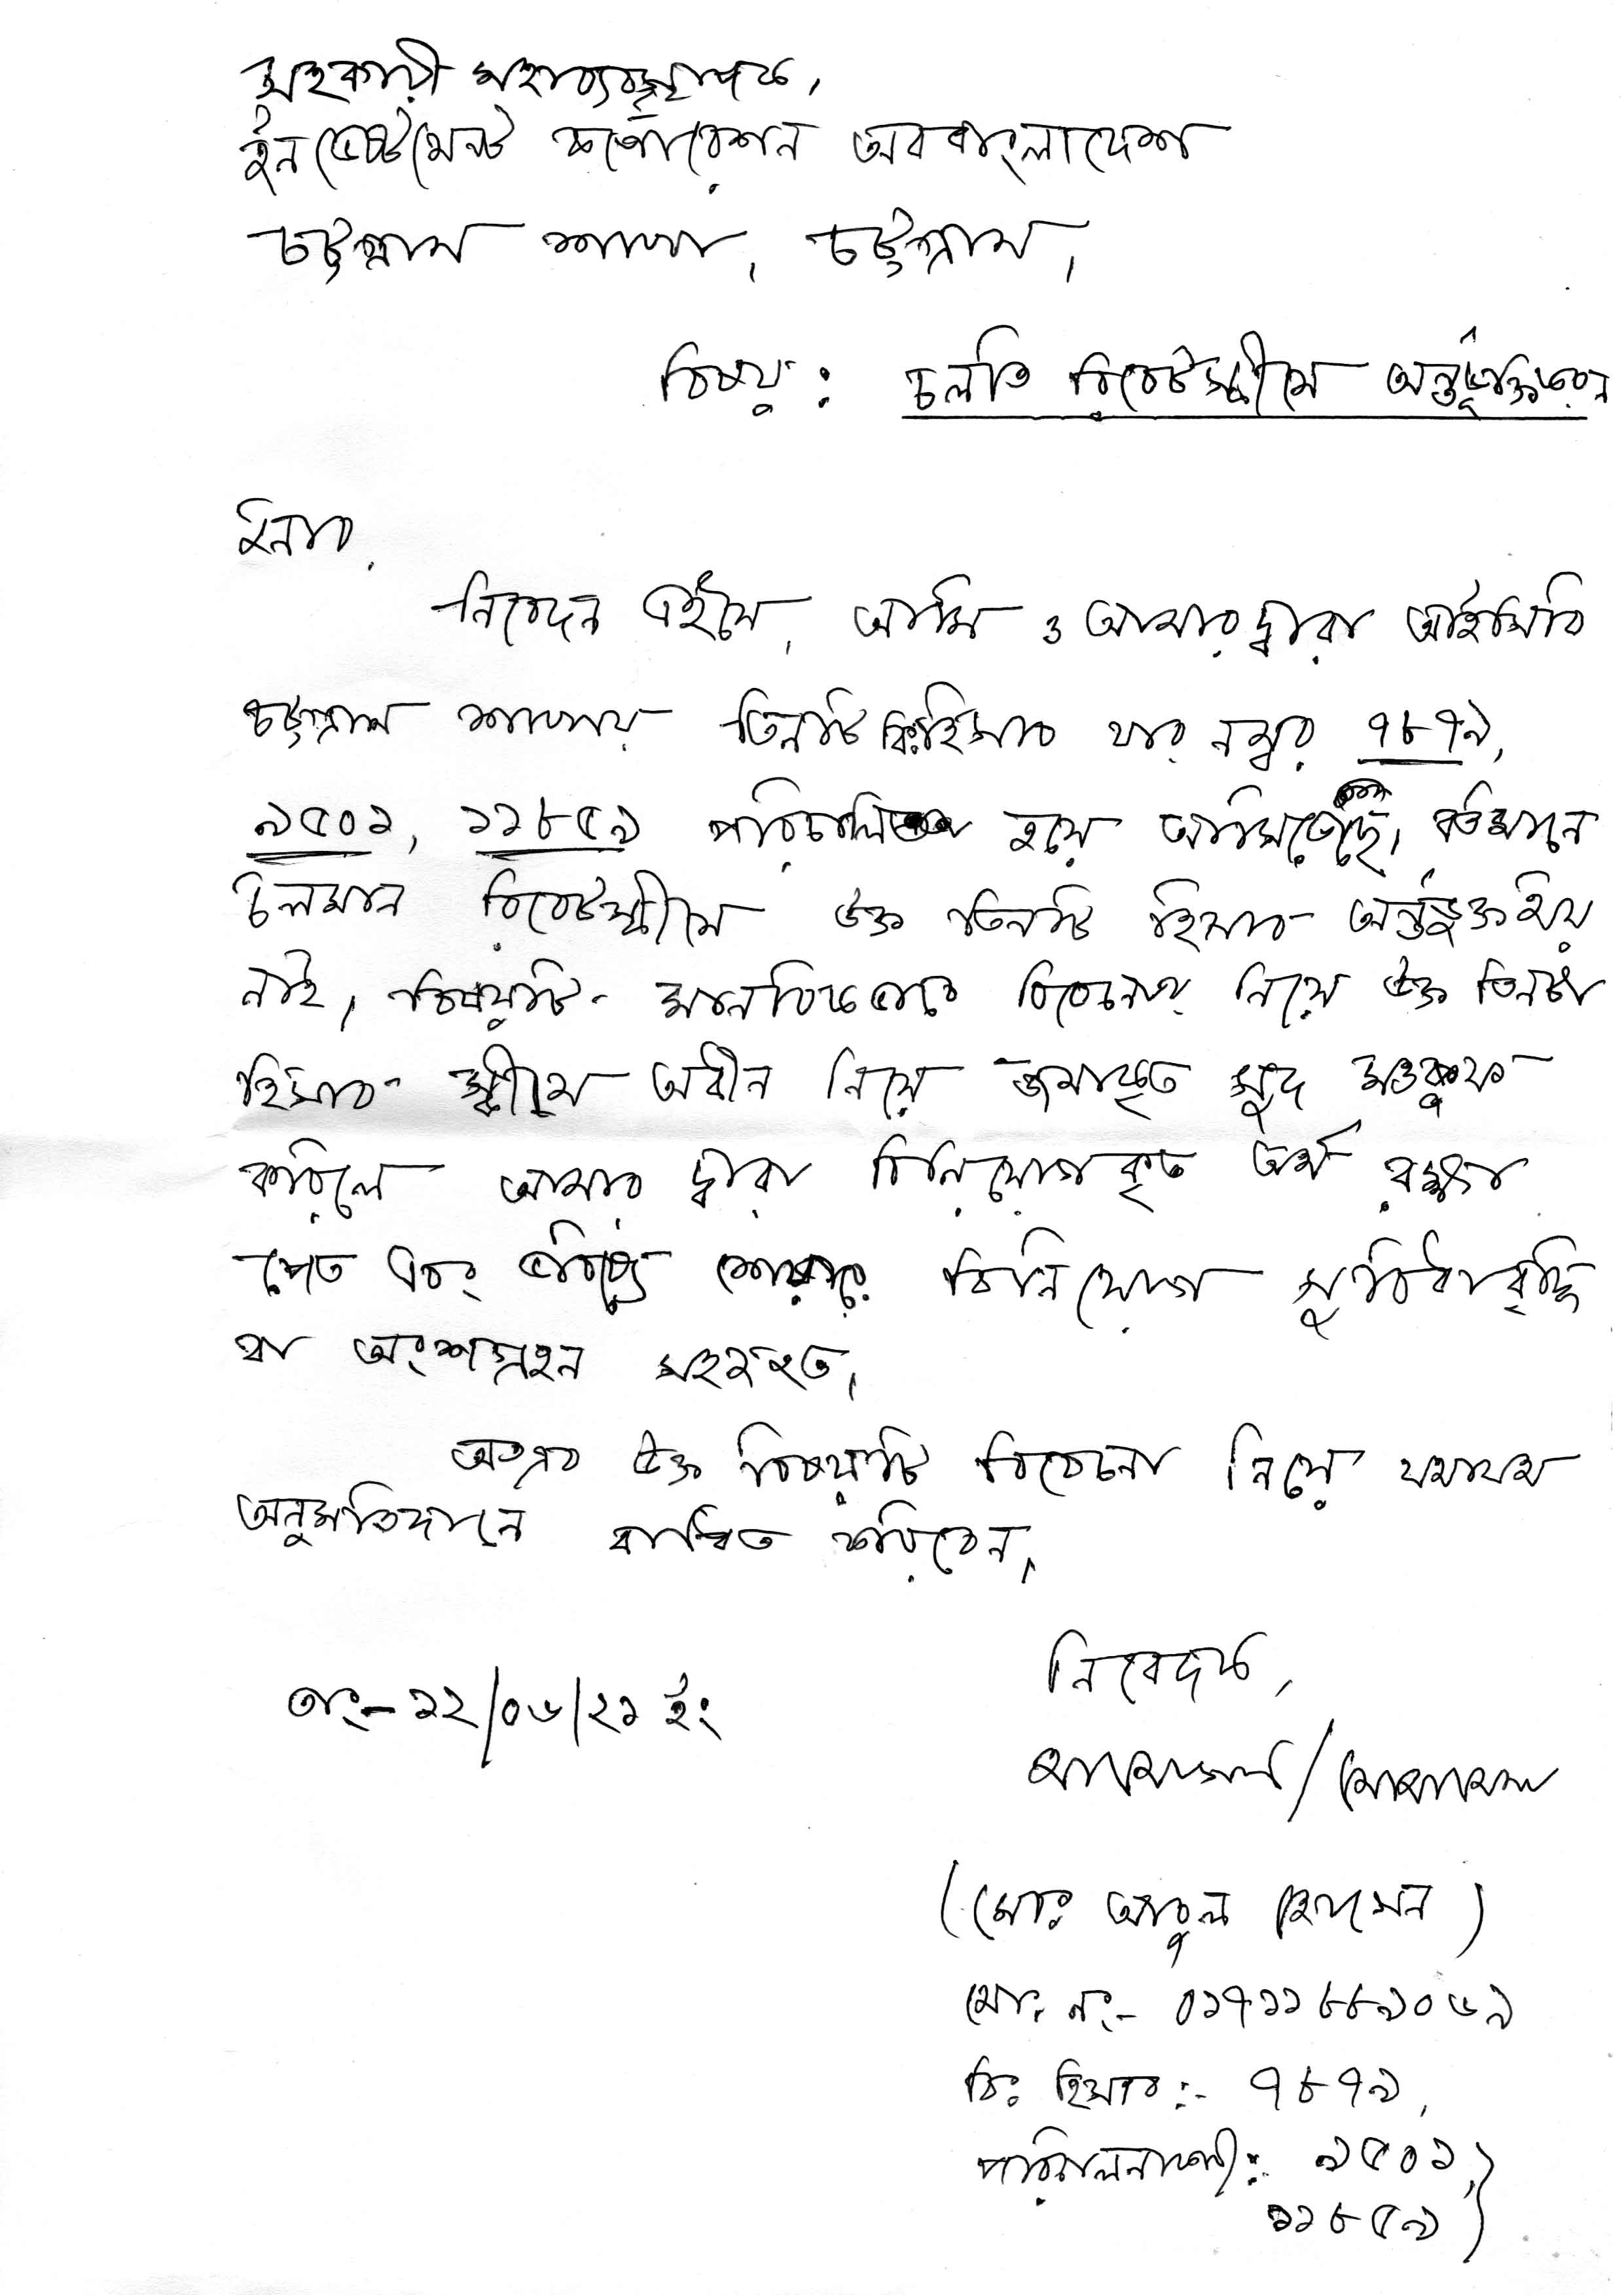 সহকারী মহাব্যবস্থাপক,
ইনভেষ্টমেনট কর্পোরেশন অব বাংলাদেশ
চট্টগ্রাম শাখা, চট্টগ্রাম।
বিষয়: চলতি রিবেট স্কীমে অর্ন্তভূক্তিকরন
জনাব,
নিবেদন এই যে, আমি ও আমার দ্বারা আইসিবি
চট্টগ্রাম শাখায় তিনটি বিঃ হিসাব যার নম্বর ৭৮৭৯,
৯৫০১, ১১৮৫৯ পরিচালিত হয়ে আসিতেছে। বর্তমানে
চলমান রিবেট স্কীমে উক্ত তিনটি হিসাব অর্ন্তভুক্ত হয়
নাই। বিষয়টি মানবিকভাবে বিবেচনায় নিয়ে উক্ত তিনটা
হিসাব স্কীমে অধীন নিয়ে জমাকৃত সুদ মওকুফ
করিলে আমার দ্বারা বিনিয়োগকৃত অর্থ রক্ষা
পেত এবং ভবিষ্যতে শেয়ারে বিনিয়োগ সুবিধা বৃদ্ধি
বা অংশগ্রহন সহজ হত।
অতএব উক্ত বিষয়টি বিবেচনা নিয়ে যথাযথ
অনুমতিদানে বাধিত করিবেন।
নিবেদক,
তাং- ১২/০৬/২১ ইং
(মোঃ আবুল হোসেন)
মোঃ নং- ০১৭১১৮৮৯০৬৯
বিঃ হিসাব:- ৭৮৭৯,
পরিচালনাকারী: ৯৫০১,
১১৮৫৯)